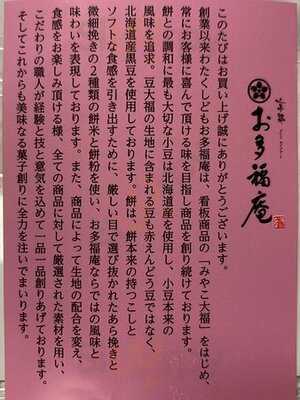 お多福庵
このたびはお買い上げ誠にありがとうございます。
創業以来わたくしどもお多福庵は、看板商品の「みやこ大福」をはじめ、
常にお客様に喜んで頂ける味を目指し商品を創り続けております。
餅との調和に最も大切な小豆は北海道産を使用し、小豆本来の
風味を追求。豆大福の生地に含まれる豆も赤えんどう豆ではなく、
北海道産黒豆を使用しております。餅は、餅本来の持つこしと
ソフトな食感を引き出すために、厳しい目で選び抜かれたあら挽きと
微細挽きの2種類の餅米と餅粉を使い、お多福庵ならではの風味と
味わいを表現しております。また、商品によって生地の配合を変え、
食感をお楽しみ頂ける様、全ての商品に対して厳選された素材を用い、
こだわりの職人が経験と技と意気を込めて一品一品創りあげております。
そしてこれからも美味なる菓子創りに全力を注いでまいります。